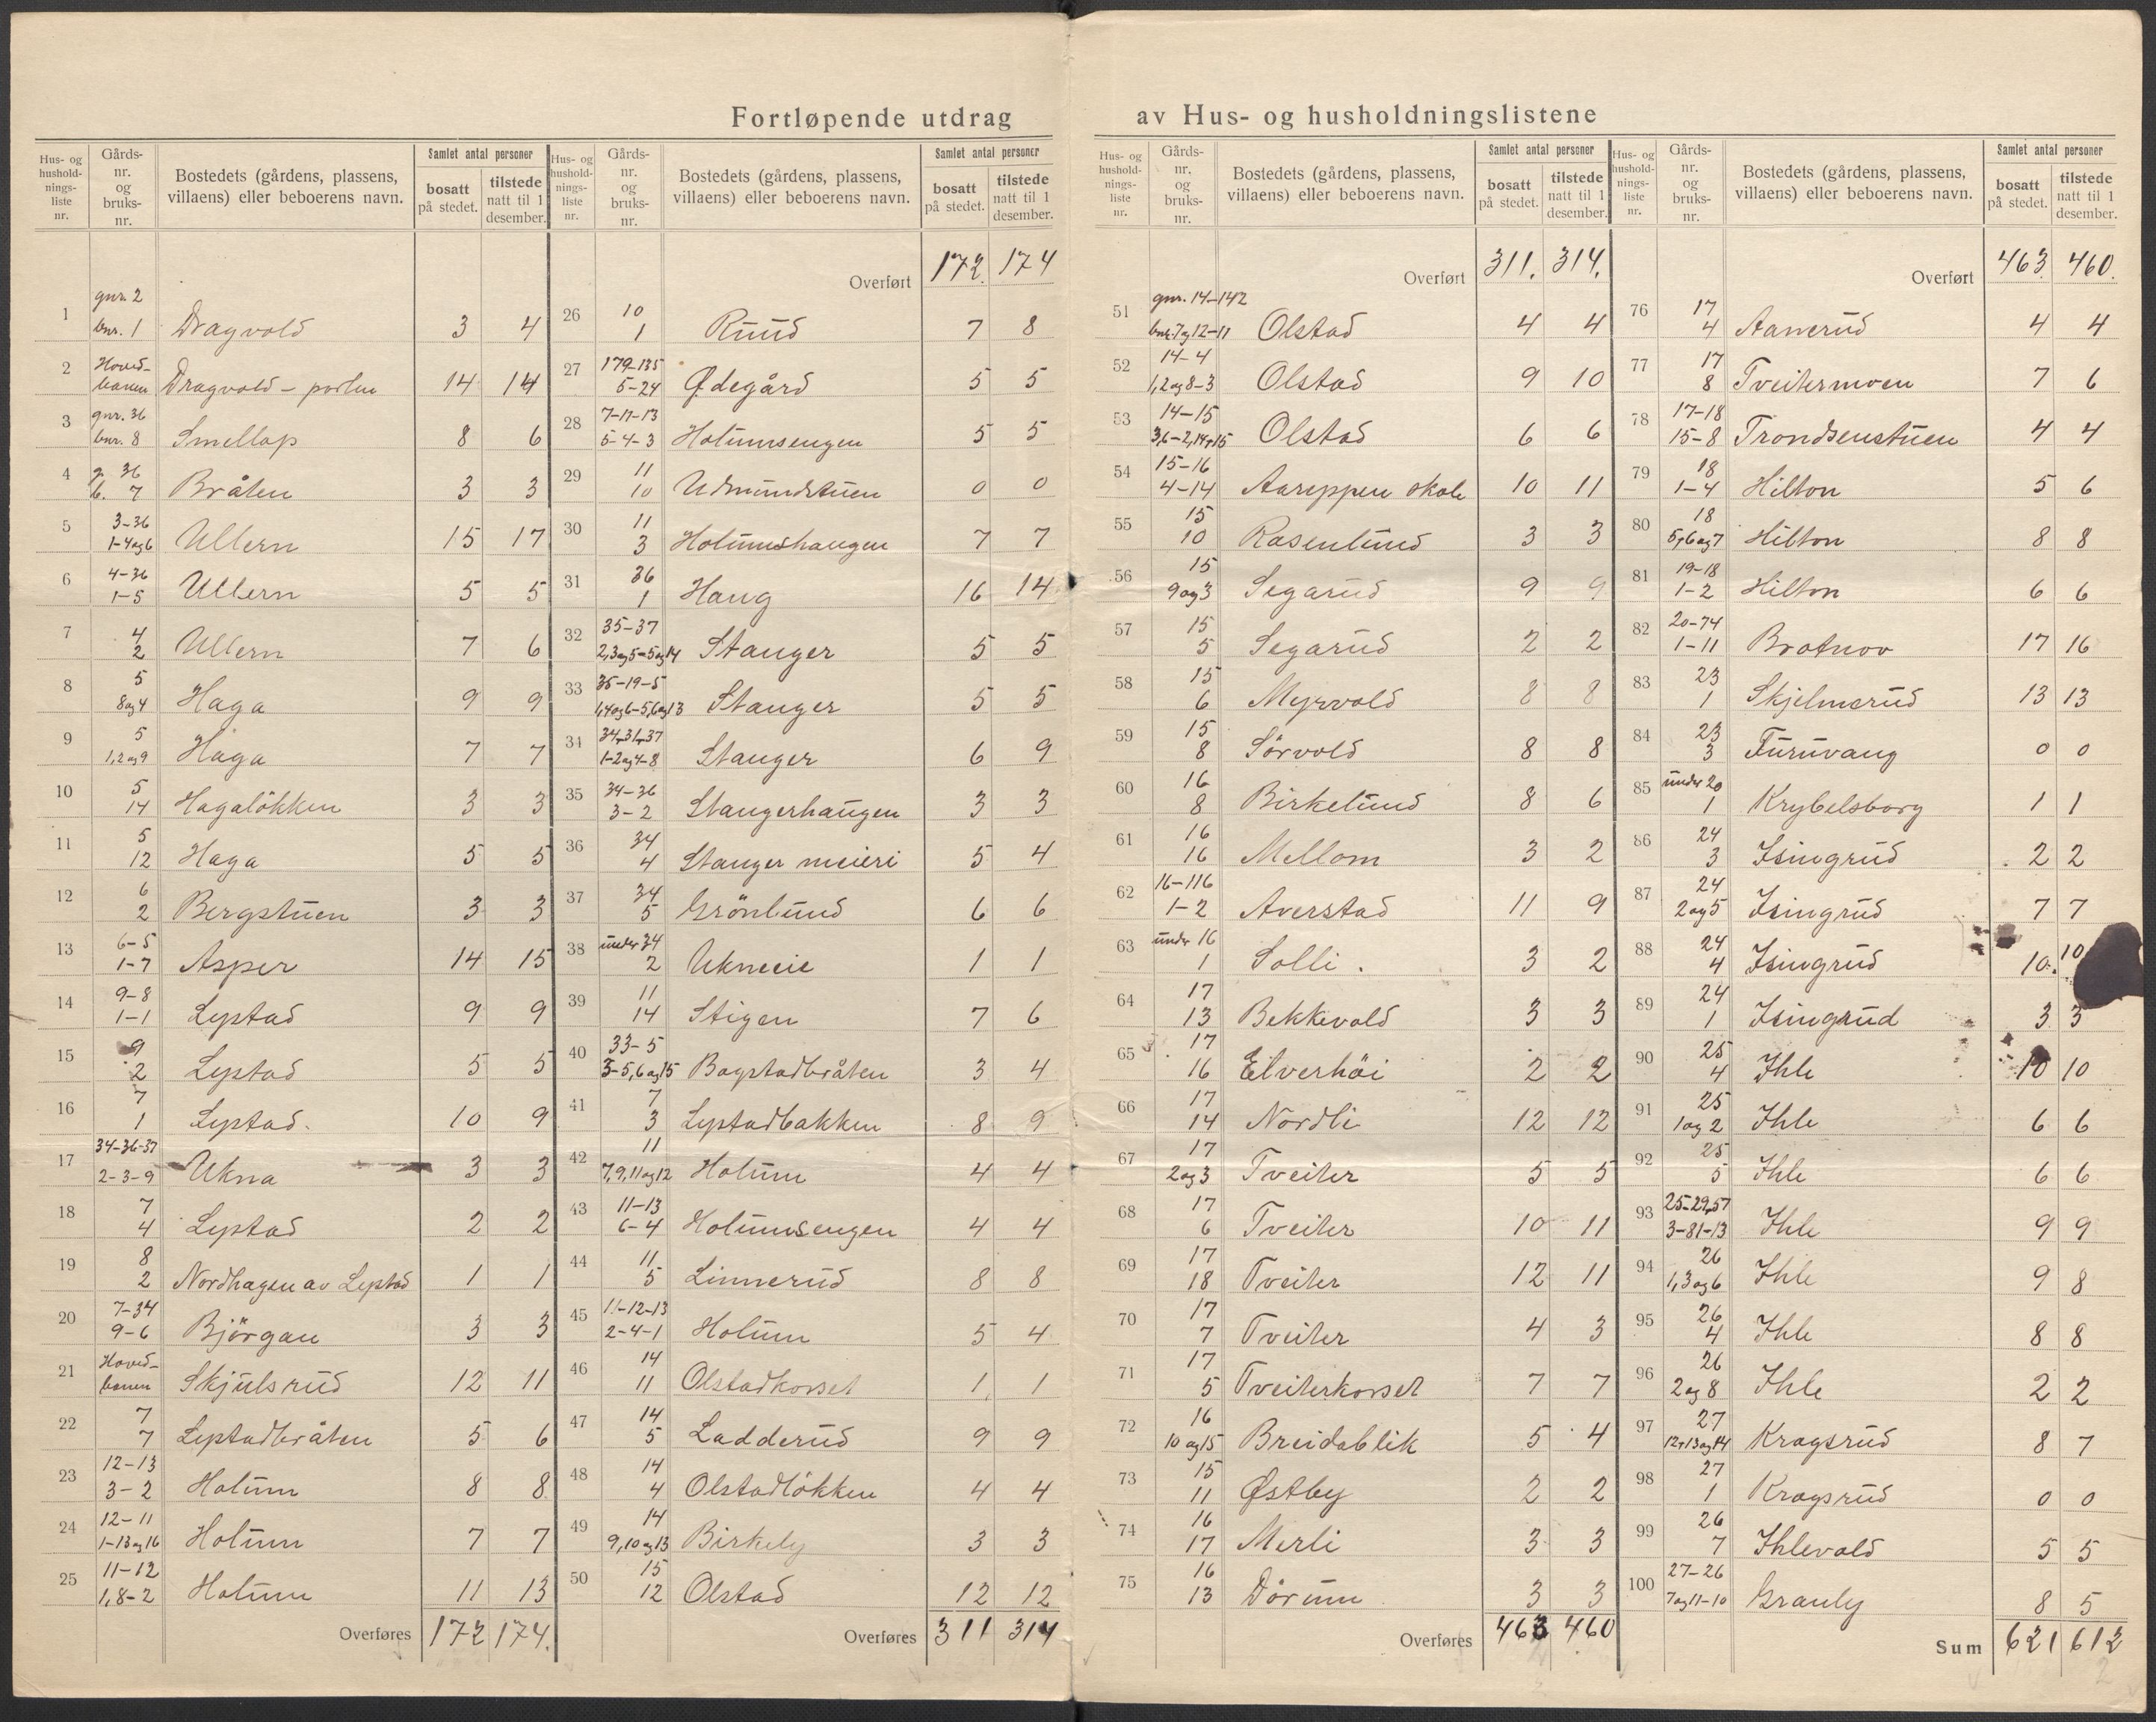 Fortløpende utdrag av Hus- og husholdningslistene
Hus- og hushold-nings-liste nr. | Gårds-nr. og bruks-nr. | Bostedets (gårdens, plassens, villaens) eller beboerens navn. | Samlet antal personer | bosatt på stedet. | tilstede natt til 1 desember.
1 | gnr. 2 bnr. 1 | Dragvold | 3 | 4
2 | Hoved-banen | Dragvold - porten | 14 | 14
3 | gnr. 36 bnr. 8 | Smellop | 8 | 6
4 | g. 36 b. 7 | Bråten | 3 | 3
5 | 3-36 1-4og6 | Ullern | 15 | 17
6 | 4-36 1-5 | Ullern | 5 | 5
7 | 4 2 | Ullern | 7 | 6
8 | 5 8og4 | Haga | 9 | 9
9 | 5 1,2og9 | Haga | 7 | 7
10 | 5 14 | Hagaløkken | 3 | 3
11 | 5 12 | Haga | 5 | 5
12 | 6 2 | Bergstuen | 3 | 3
13 | 6-5 1-7 | Asper | 14 | 15
14 | 9-8 1-1 | Leptad | 9 | 9
15 | 9 2 | Leptad | 5 | 5
16 | 7 1 | Leptad | 10 | 9
17 | 34-36-37 2-3-9 | Ukna | 3 | 3
18 | 7 4 | Leptad | 2 | 2
19 | 8 2 | Nordhagen av Leptad | 1 | 1
20 | 7-34 9-6 | Björgan | 3 | 3
21 | Hoved-banen | Skjulsrud | 12 | 11
22 | 7 7 | Leptadbråten | 5 | 6
23 | 12-13 3-2 | Holum | 8 | 8
24 | 12-11 1-13og16 | Holum | 7 | 7
25 | 11-12 1,8-2 | Holum | 11 | 13
Overføres | 172 | 174.
Hus- og hushold-nings-liste nr. | Gårds-nr. og bruks-nr. | Bostedets (gårdens, plassens, villaens) eller beboerens navn. | Samlet antal personer | bosatt på stedet. | tilstede natt til 1 desember.
Overført | 172. | 174
26 | 10 1 | Ruud | 7 | 8
27 | 179-135 5-24 | Ødegård | 5 | 5
28 | 7-11-13 5-4-3 | Holumsengen | 5 | 5
29 | 11 10 | Udmundstuen | 0 | 0
30 | 11 3 | Holumshaugen | 7 | 7
31 | 36 1 | Haug | 16 | 14
32 | 35-37 2,3og5-5og14 | Stanger | 5 | 5
33 | 35-19-5 1,4og6-5,6og13 | Stanger | 5 | 5
34 | 34,31,37 1-2og4-8 | Stanger | 6 | 9
35 | 34-36 3-2 | Stangerhaugen | 3 | 3
36 | 34 4 | Stanger meieri | 5 | 4
37 | 34 5 | Grönlund | 6 | 6
38 | under 34 2 | Ukneeie | 1 | 1
39 | 11 14 | Stigen | 7 | 6
40 | 33-5 3-5,6og15 | Bogstadbråten | 3 | 4
41 | 7 3 | Leptadbakken | 8 | 9
42 | 11 7,9,11og12 | Holum | 4 | 4
43 | 11-13 6-4 | Holumsengen | 4 | 4
44 | 11 5 | Linnerud | 8 | 8
45 | 11-12-13 2-4-1 | Holum | 5 | 4
46 | 14 11 | Olstadkorset | 1 | 1
47 | 14 5 | Ladderud | 9 | 9
48 | 14 4 | Olstadløkken | 4 | 4
49 | 14 9,10og13 | Birkely | 3 | 3
50 | 15 12 | Olstad | 12 | 12
Overføres | 311 | 314
Hus- og hushold-nings-liste nr. | Gårds-nr. og bruks-nr. | Bostedets (gårdens, plassens, villaens) eller beboerens navn. | Samlet antal personer | bosatt på stedet. | tilstede natt til 1 desember.
Overført | 311. | 314.
51 | gnr. 14-142 bnr. 7og12-11 | Olstad | 4 | 4
52 | 14-4 1,2og8-3 | Olstad | 9 | 10
53 | 14-15 3,6-2,14,15 | Olstad | 6 | 6
54 | 15-16 4-14 | Aareppen skole | 10 | 11
55 | 15 10 | Rosenlund | 3 | 3
56 | 15 9og3 | Segarud | 9 | 9
57 | 15 5 | Segarud | 2 | 2
58 | 15 6 | Myrvold | 8 | 8
59 | 15 8 | Sörvold | 8 | 8
60 | 16 8 | Birkelund | 8 | 6
61 | 16 16 | Mellom | 3 | 2
62 | 16-116 1-2 | Averstad | 11 | 9
63 | under 16 1 | Solli. | 3 | 2
64 | 17 13 | Bekkevold | 3 | 3
65 | 17 16 | Elverhöi | 2 | 2
66 | 17 14 | Nordli | 12 | 12
67 | 17 2og3 | Tveiter | 5 | 5
68 | 17 6 | Tveiter | 10 | 11
69 | 17 18 | Tveiter | 12 | 11
70 | 17 7 | Tveiter | 4 | 3
71 | 17 5 | Tveiterkorset | 7 | 7
72 | 16 10og15 | Breidablik | 5 | 4
73 | 15 11 | Østby | 2 | 2
74 | 16 17 | Merli | 3 | 3
75 | 16 13 | Dörum | 3 | 3
Overføres | 463 | 460
Hus- og hushold-nings-liste nr. | Gårds-nr. og bruks-nr. | Bostedets (gårdens, plassens, villaens) eller beboerens navn. | Samlet antal personer | bosatt på stedet. | tilstede natt til 1 desember.
Overført | 463. | 460.
76 | 17 4 | Aanerud | 4 | 4
77 | 17 8 | Tveitermoen | 7 | 6
78 | 17-18 15-8 | Trondsenstuen | 4 | 4
79 | 18 1-4 | Hilton | 5 | 6
80 | 18 5,6og7 | Hilton | 8 | 8
81 | 19-18 1-2 | Hilton | 6 | 6
82 | 20-74 1-11 | Brotnov | 17 | 16
83 | 23 1 | Skjelmerud | 13 | 13
84 | 23 3 | Furuvang | 0 | 0
85 | under 20 1 | Krybelsborg | 1 | 1
86 | 24 3 | Isingrud | 2 | 2
87 | 24 2og5 | Isingrud | 7 | 7
88 | 24 4 | Isingrud | 10 | 10
89 | 24 1 | Isingrud | 3 | 3
90 | 25 4 | Ihle | 10 | 10
91 | 25 1og2 | Ihle | 6 | 6
92 | 25 5 | Ihle | 6 | 6
93 | 25-29,57 3-81-13 | Ihle | 9 | 9
94 | 26 1,3og6 | Ihle | 9 | 8
95 | 26 4 | Ihle | 8 | 8
96 | 26 2og8 | Ihle | 2 | 2
97 | 27 12,13og14 | Kragsrud | 8 | 7
98 | 27 1 | Kragsrud | 0 | 0
99 | 26 7 | Ihlevold | 5 | 5
100 | 27-26 7og11-10 | Granly | 8 | 5
Sum | 621 | 612
2